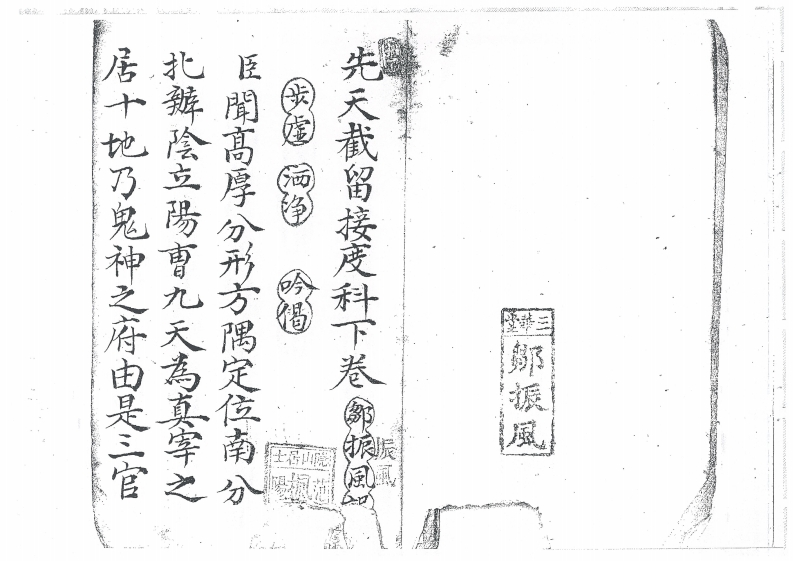 三華堂
鄒振風
先天截留接度科下卷
鄒振風
振風
步虛 洒净 吟偈
臣聞高厚分形方隅定位南分
北辦陰立陽曺九天為真宰之
居十地乃鬼神之府由是三官